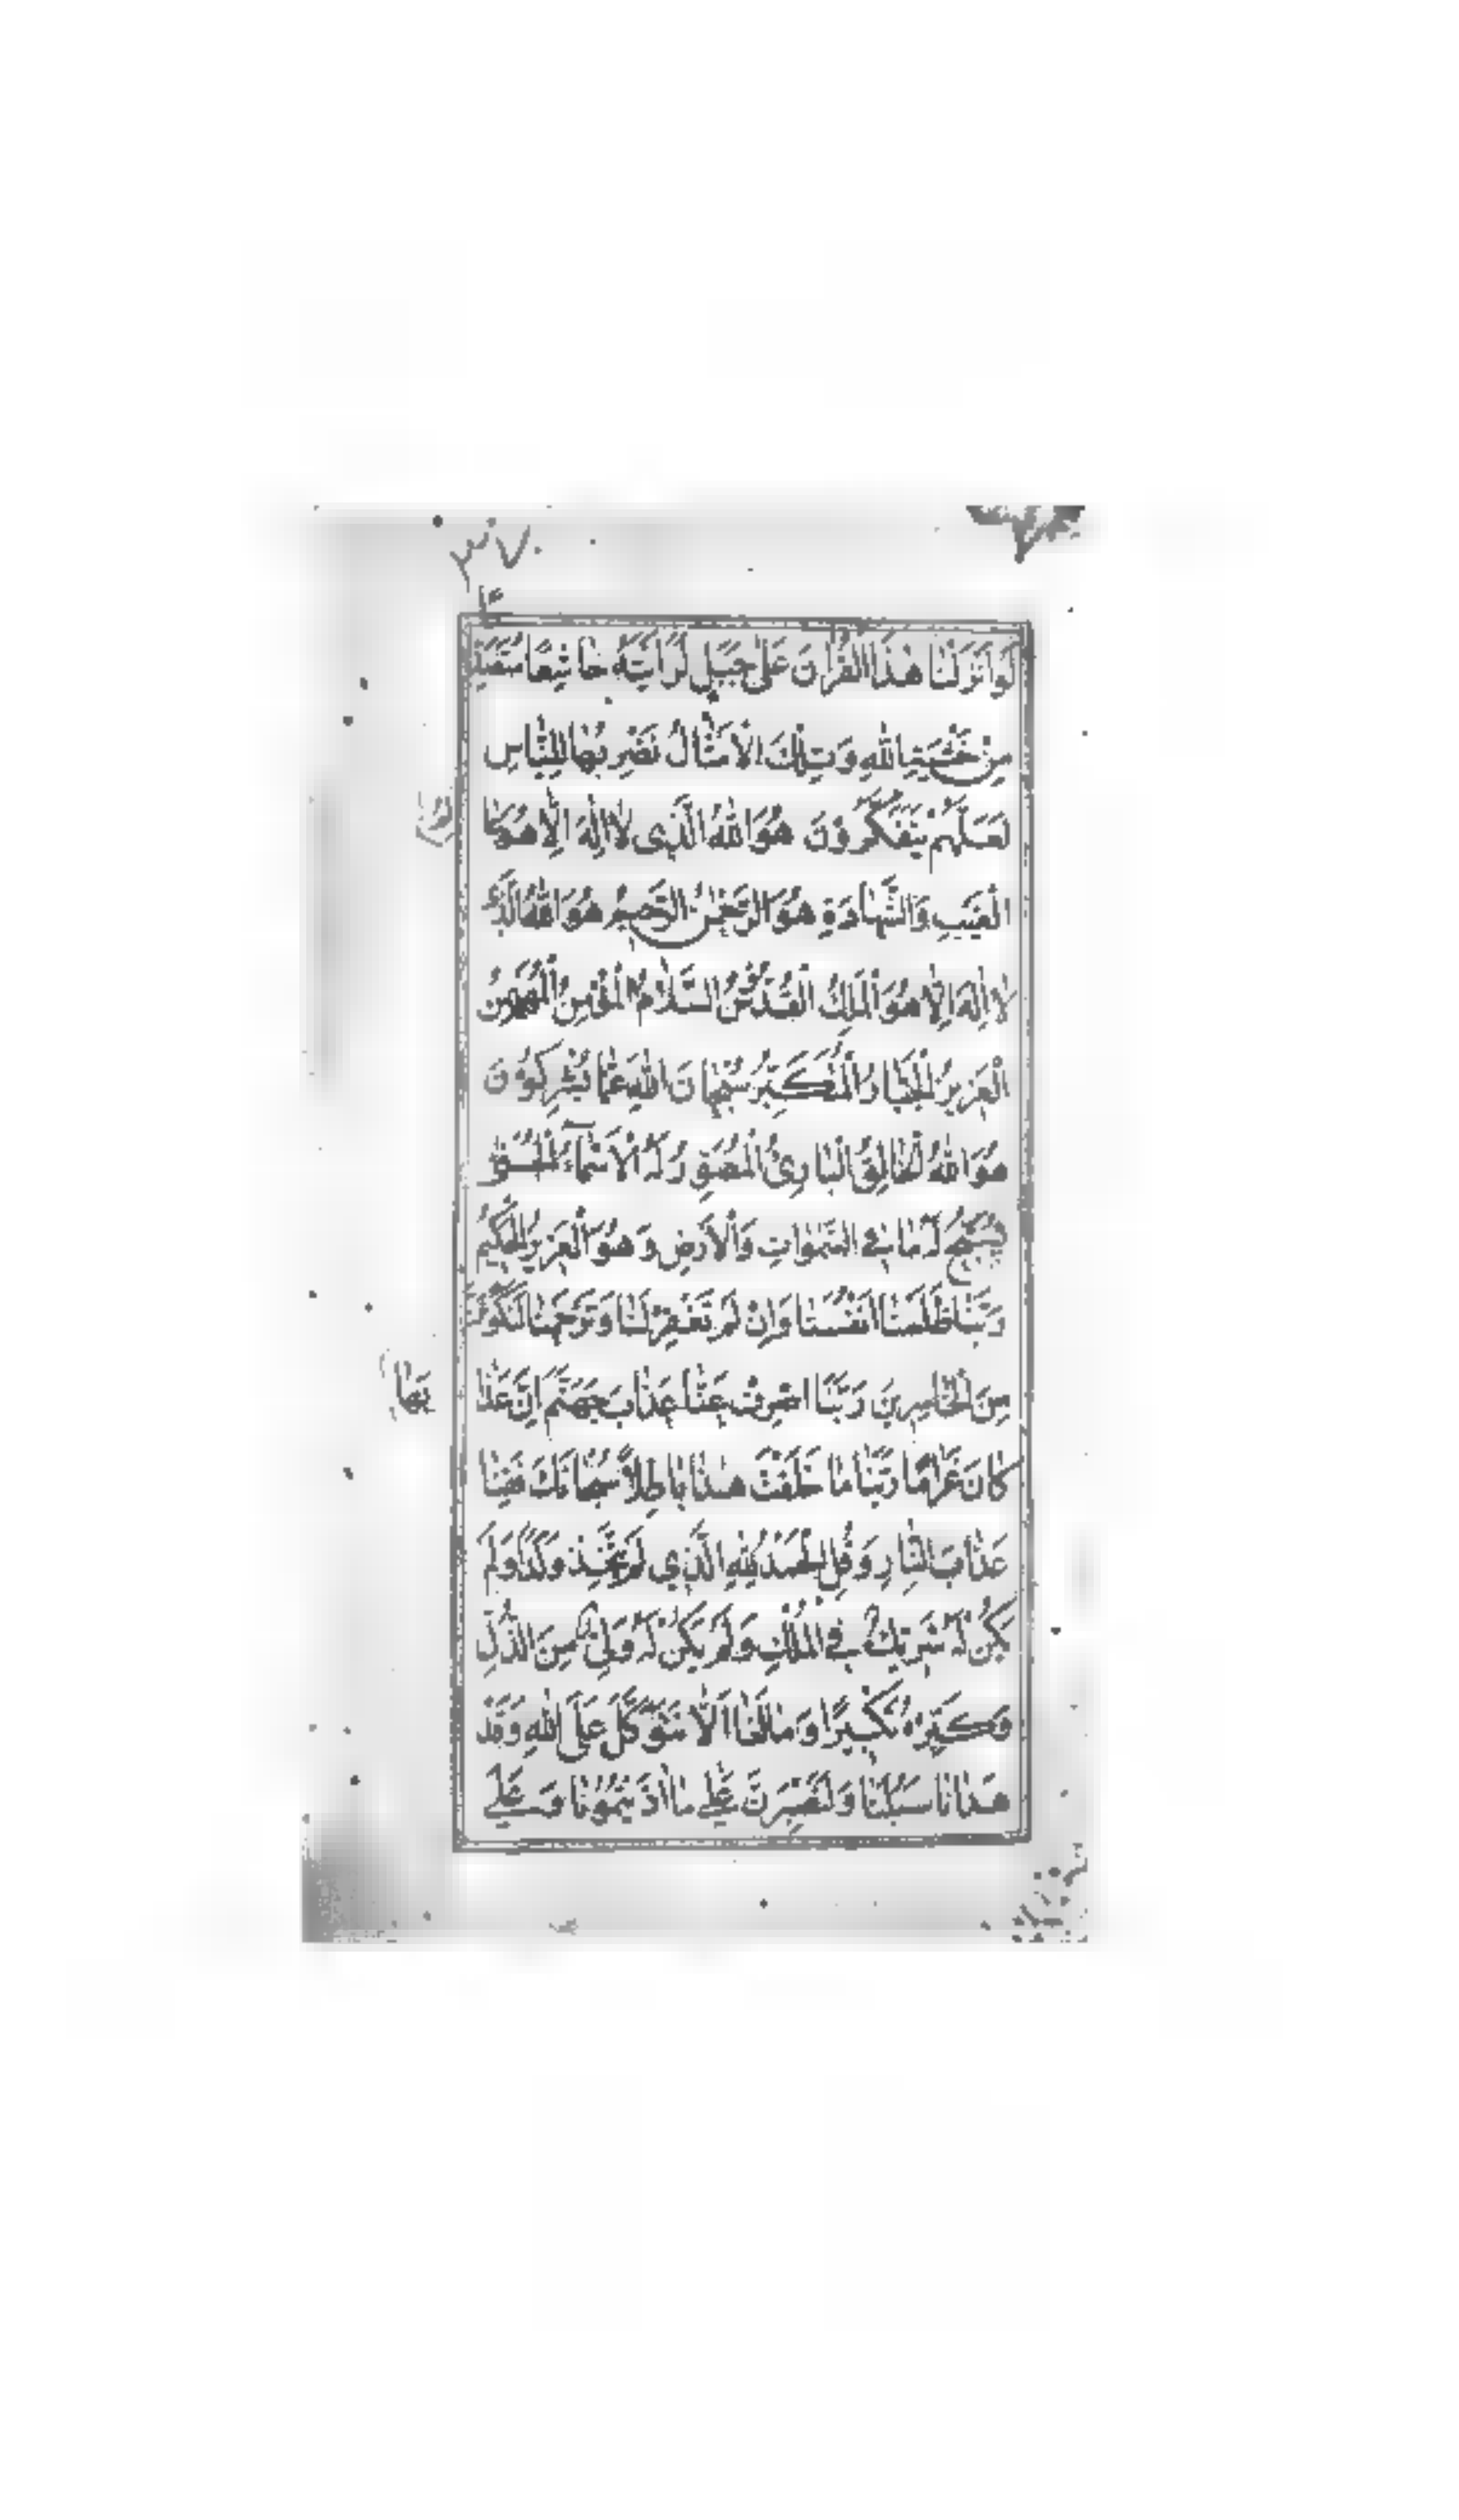 ٣٧٠
لَوْ اَنْزَلْنَا هٰذَا الْقُرْاٰنَ عَلٰى جَبَلٍ لَرَاَيْتَهُ خَاشِعًا مُتَصَدِّ
مِنْ خَشْيَةِ اللّٰهِ وَتِلْكَ الْاَمْثَالُ نَضْرِبُهَا لِلنَّاسِ
لَعَلَّهُمْ يَتَفَكَّرُوْنَ هُوَ اللّٰهُ الَّذِى لَا اِلٰهَ اِلَّا هُوَ عَا
الْغَيْبِ وَالشَّهَادَةِ هُوَ الرَّحْمٰنُ الرَّحِيْمُ هُوَ اللّٰهُ الَّذِى
لَا اِلٰهَ اِلَّا هُوَ الْمَلِكُ الْقُدُّوْسُ السَّلَامُ الْمُؤْمِنُ الْمُهَيْمِنُ
الْعَزِيْزُ الْجَبَّارُ الْمُتَكَبِّرُ سُبْحَانَ اللّٰهِ عَمَّا يُشْرِكُوْنَ
هُوَ اللّٰهُ الْخَالِقُ الْبَارِئُ الْمُصَوِّرُ لَهُ الْاَسْمَآءُ الْحُسْنٰى
يُسَبِّحُ لَهُ مَا فِى السَّمٰوَاتِ وَالْاَرْضِ وَهُوَ الْعَزِيْزُ الْحَكِيْمُ
رَبَّنَا ظَلَمْنَا اَنْفُسَنَا وَاِنْ لَمْ تَغْفِرْ لَنَا وَتَرْحَمْنَا لَنَكُوْنَنَّ
مِنَ الْخَاسِرِيْنَ رَبَّنَا اصْرِفْ عَنَّا عَذَابَ جَهَنَّمَ اِنَّ عَذَا
كَانَ غَرَامًا رَبَّنَا مَا خَلَقْتَ هٰذَا بَاطِلًا سُبْحَانَكَ فَقِنَا
عَذَابَ النَّارِ وَقُلِ الْحَمْدُ لِلّٰهِ الَّذِي لَمْ يَتَّخِذْ وَلَدًا وَلَمْ
يَكُنْ لَهُ شَرِيْكٌ فِى الْمُلْكِ وَلَمْ يَكُنْ لَهُ وَلِيٌّ مِنَ الذُّلِّ
وَكَبِّرْهُ تَكْبِيْرًا وَمَا لَنَا اَلَّا نَتَوَكَّلَ عَلَى اللّٰهِ وَقَدْ
هَدَانَا سُبُلَنَا وَلَنَصْبِرَنَّ عَلٰى مَا اٰذَيْتُمُوْنَا وَعَلَى